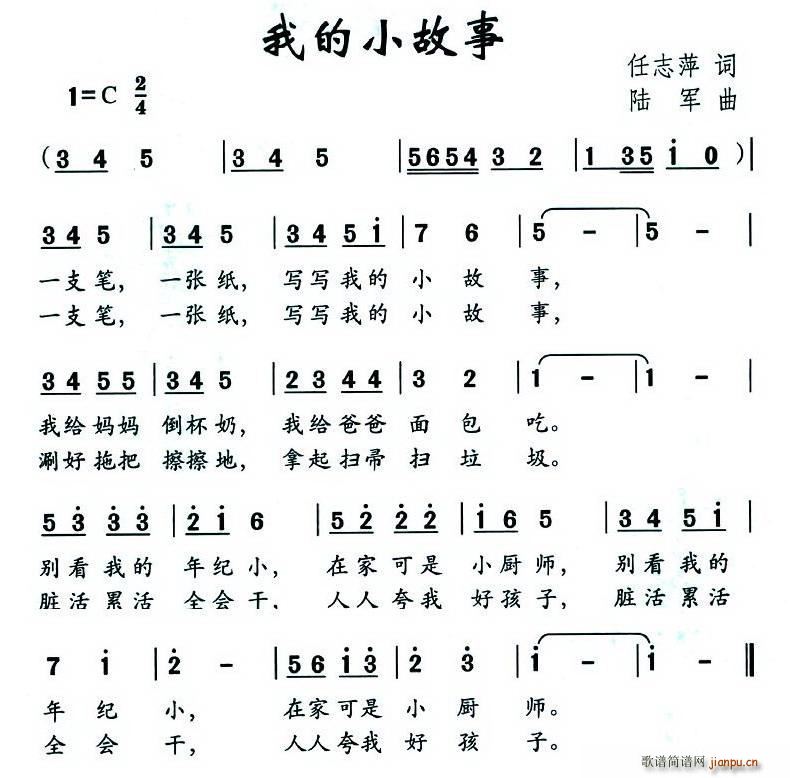 我的小故事
任志萍 词
1=C 2/4
陆 军 曲
(3 4 5 | 3 4 5 | 5654 3 2 | 1 35 i 0 )|
3 4 5 | 3 4 5 | 3 4 5 i | 7 6 | 5 - | 5 - |
一支笔, 一张纸, 写写我的 小 故 事,
一支笔, 一张纸, 写写我的 小 故 事,
3 4 5 5 | 3 4 5 | 2 3 4 4 | 3 2 | 1 - | 1 - |
我给妈妈 倒杯奶, 我给爸爸 面 包 吃。
涮好拖把 擦擦地, 拿起扫帚 扫 垃 圾。
5 3̇ 3̇ 3̇ | 2̇ i 6 | 5 2̇ 2̇ 2̇ | i 6 5 | 3 4 5 i |
别看我的 年纪小, 在家可是 小厨师, 别看我的
脏活累活 全会干, 人人夸我 好孩子, 脏活累活
7 i | 2̇ - | 5 6 i 3̇ | 2̇ 3̇ | i - | i - ‖
年 纪 小, 在家可是 小 厨 师。
全 会 干, 人人夸我 好 孩 子。
歌谱简谱网
jianpu.cn